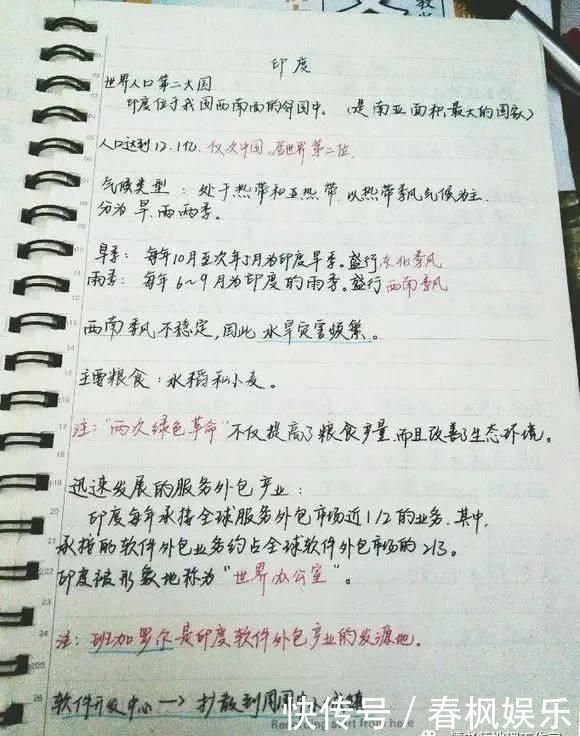 印度
世界人口第二大国
印度位于我国西南面的邻国中。(是南亚面积最大的国家)
人口达到12.1亿.仅次中国,居世界第二位.
气候类型:处于热带和亚热带.以热带季风气候为主.
分为旱.雨两季。
旱季:每年10月至次年5月为印度旱季。盛行东北季风
雨季:每年6~9月为印度的雨季。盛行西南季风
西南季风不稳定,因此水旱灾害频繁。
主要粮食:水稻和小麦。
注:"两次绿色革命"不仅提高了粮食产量,而且改善了生态环境。
迅速发展的服务外包产业:
印度每年承接全球服务外包市场近1/2的业务.其中,
承接的软件外包业务约占全球软件外包市场的2/3。
印度被形象地称为"世界办公室"。
注:班加罗尔是印度软件外包产业的发源地。
软件开发中心→扩散到周围
start from here
快传号/春枫娱乐